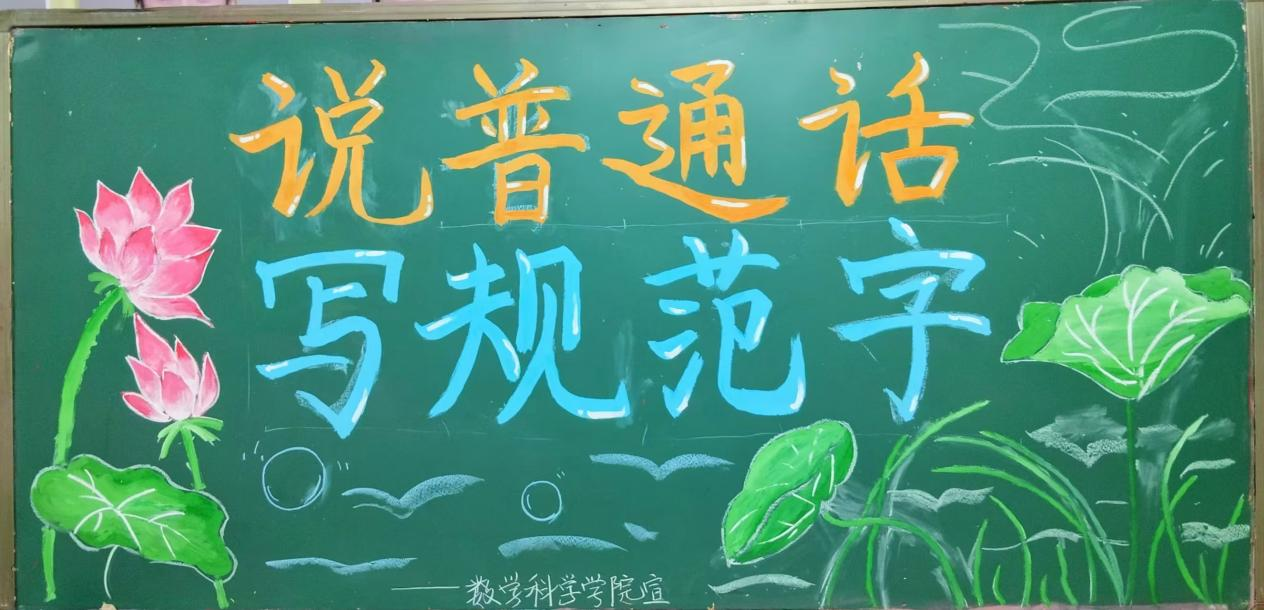 说普通话
写规范字
——数学科学学院宣